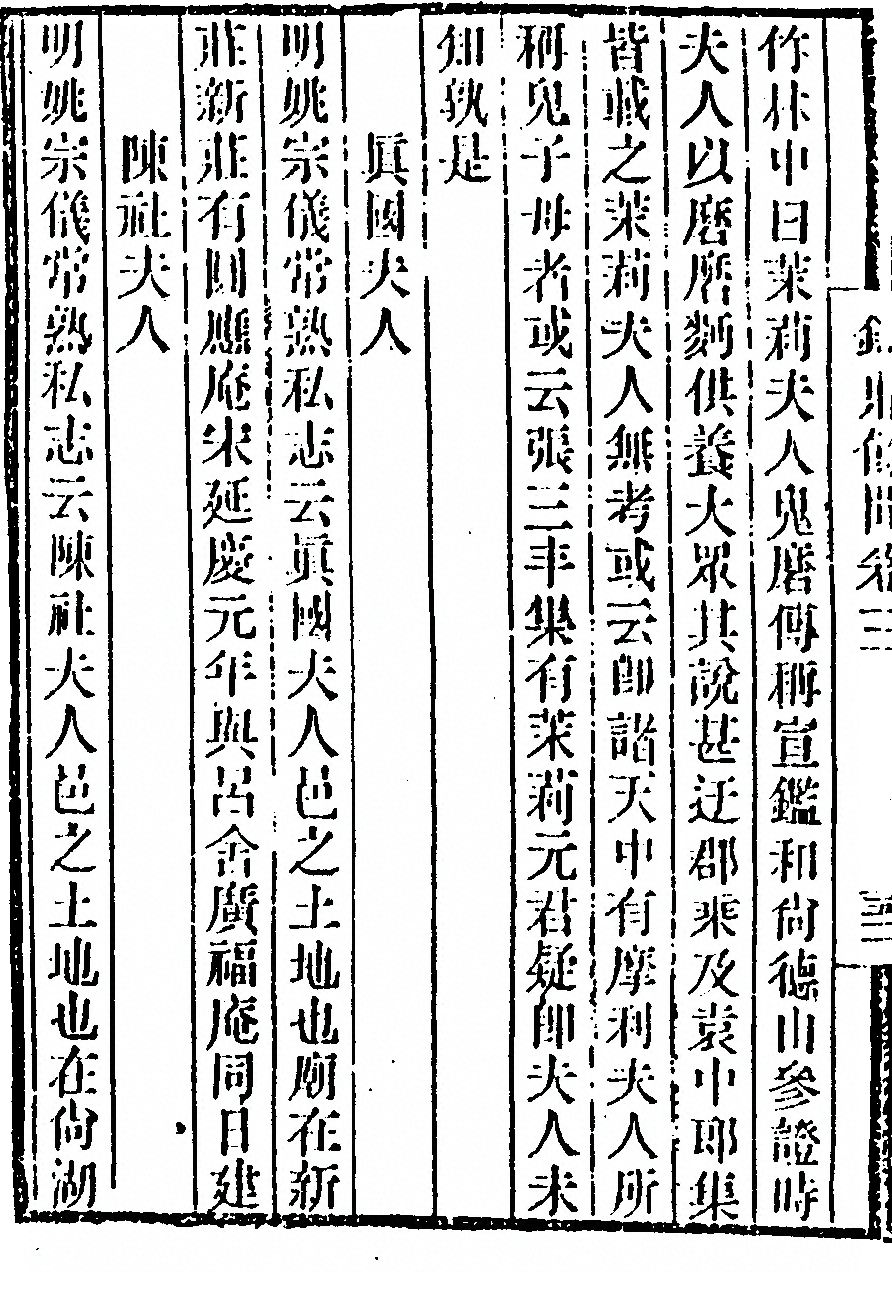 竹林中曰茉莉夫人鬼磨傳稱宣鑑和尙德山參證時
夫人以磨磨麪供養大眾其說甚迂郡乘及袁中郎集
皆載之茉莉夫人無考或云卽諸天中有摩利夫人所
稱鬼子母者或云張三丰集有茉莉元君疑卽夫人未
知孰是
眞國夫人
明姚宗儀常熟私志云眞國夫人邑之土地也廟在新
莊新莊有圓應庵宋延慶元年與呂舍廣福庵同日建
陳社夫人
明姚宗儀常熟私志云陳社夫人邑之土地也在尙湖